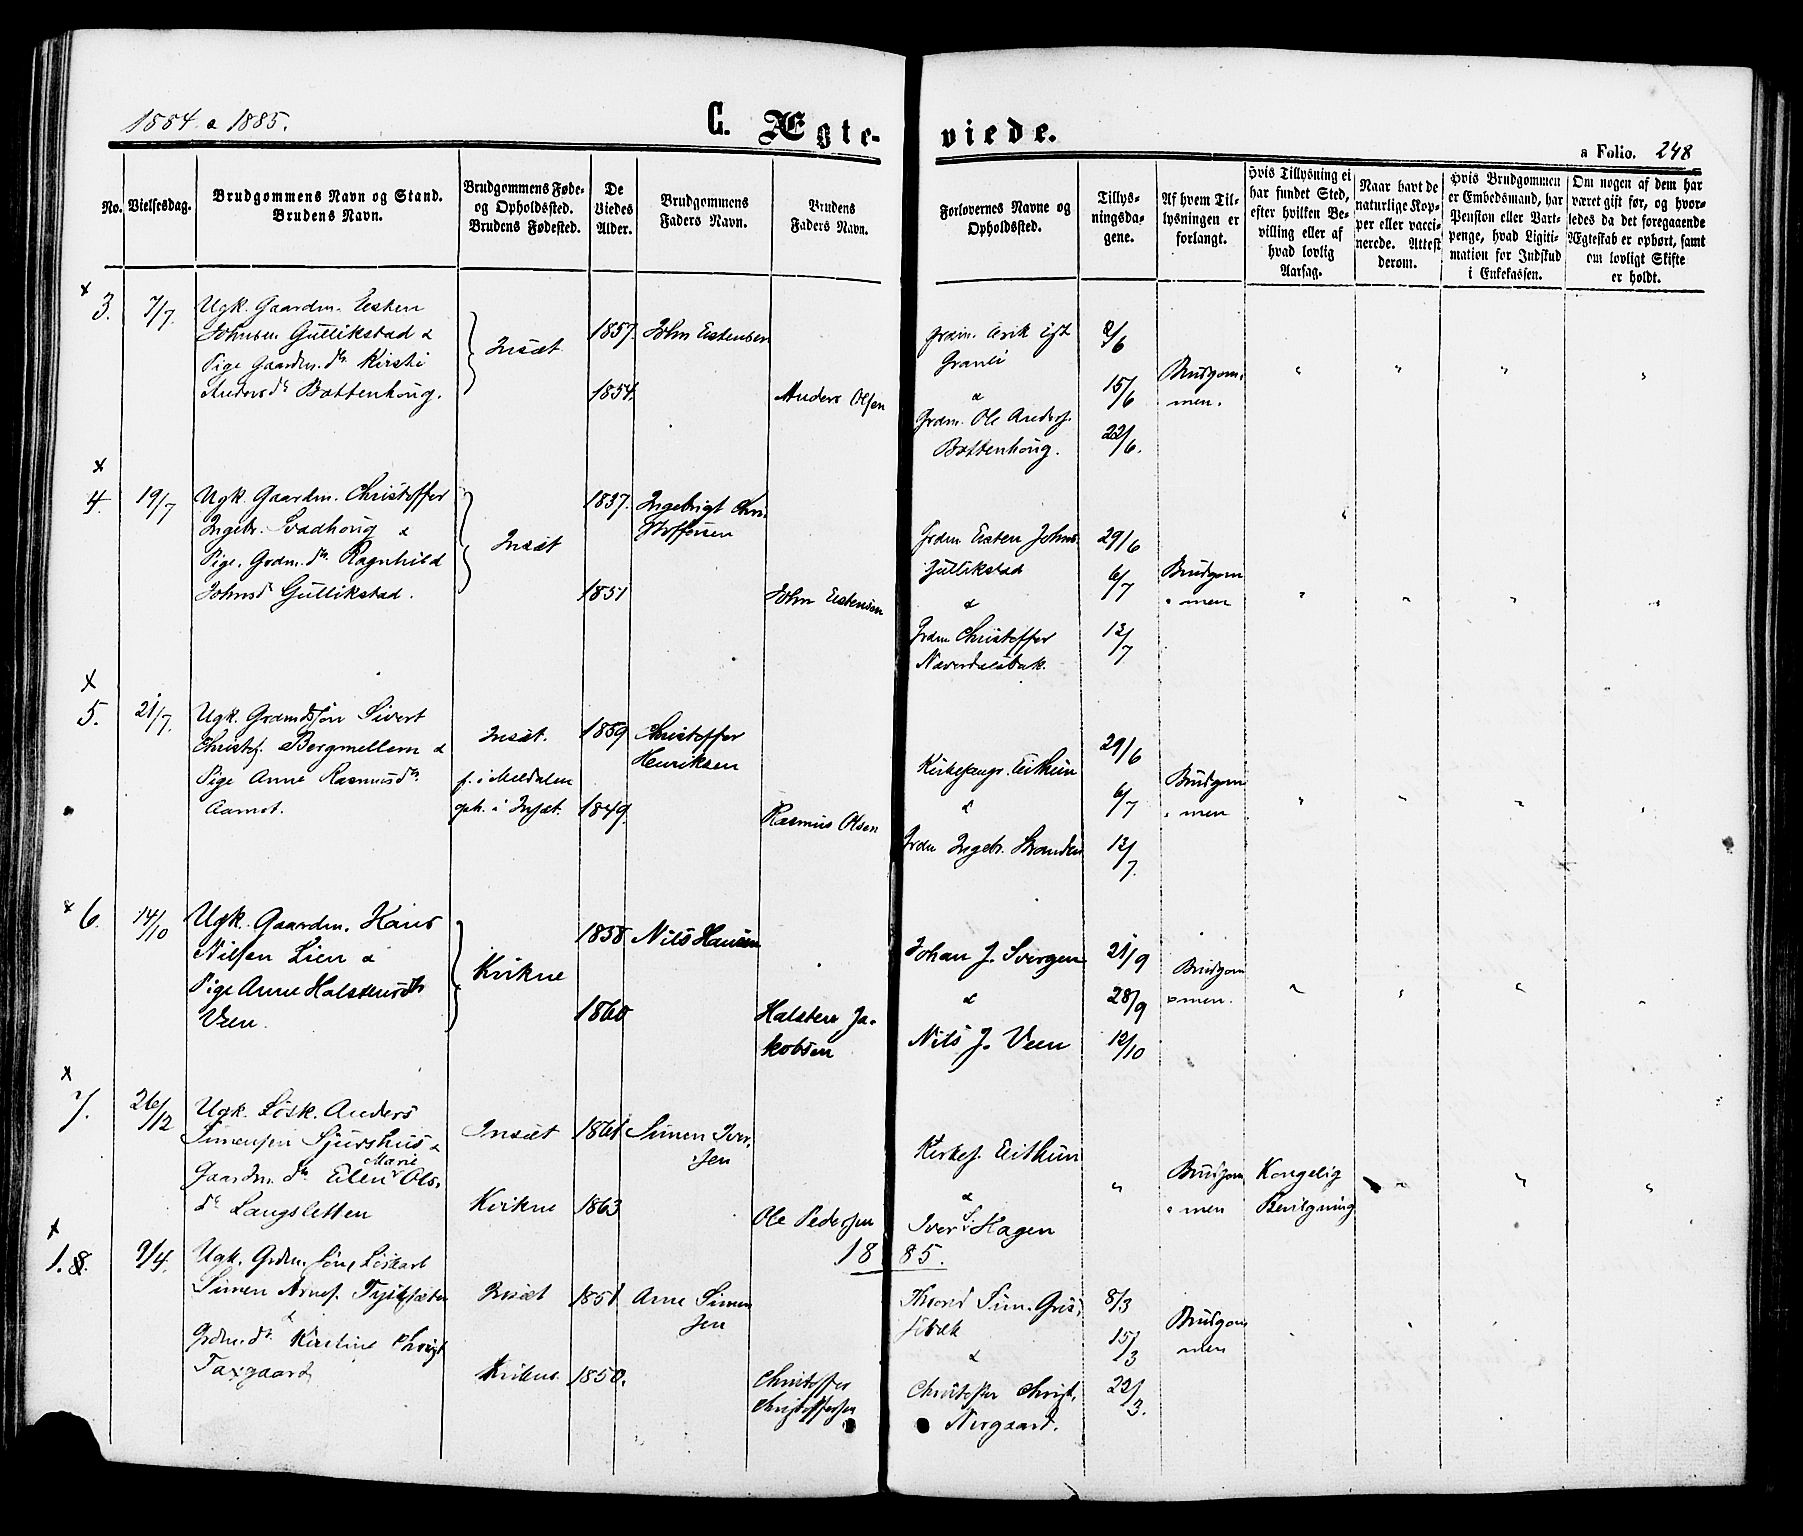 1884 a 1885.
C. Ægte-
viede.
a Folio. 248
No.
Vielsesdag.
Brudgommens Navn og Stand.
Brudens Navn.
Brudgommens Føde-
og Opholdssted.
Brudens Fødested.
De
Viedes
Alder.
Brudgommens
Faders Navn.
Brudens
Faders Navn.
Forlovernes Navne og
Opholdssted.
Tillys-
ningsda-
gene.
Af hvem Til-
lysningen er
forlangt.
Hvis Tillysning ei
har fundet Sted,
efter hvilken Be-
villing eller af
hvad lovlig
Aarsag.
Naar havt de
naturlige Kop-
per eller vacci-
nerede. Attest
derom.
Hvis Brudgommen
er Embedsmand, har
Pension eller Vart-
penge, hvad Ligiti-
mation for Indskud
i Enkekassen.
Om nogen af dem har
været gift før, og hvor-
ledes da det foregaaende
Ægteskab er ophørt, samt
om lovligt Skifte
er holdt.
x
3.
7/7.
Ugk. Gaardm. Eisten
Johnsen Gullikstad &
Pige Gaardm. dtr Kirsti
Andersdr Bottenhoug.
Insæt
1857.
1854.
John Estensen
Anders Olsen
Grdm. Erik Eist
Granli
&
Grdm. Ole Anders.
Bottenhoug.
8/6
15/6
22/6.
Brudgom-
men.
x
4.
19/7
Ugk. Gaardm. Christoffer
Ingebr. Svadhoug &
Pige, Grdm. dtr Ragnhild
Johnsd Gullikstad.
Insæt
1837.
1851
Ingebrigt Chri-
stoffersen
John Estensen
Grdm Eisten Johns
Gullikstad
&
Grdm Christoffer
Naverdalsbak.
29/6
6/7
13/7
Brudgom
men
x
5.
21/7.
Ugk. Grdmdssøn Sivert
Christof. Bergmellem &
Pige Anne Rasmusdtr
Aamot.
Insæt.
f. i Meldalen
oph. i Insæt.
1859
1849.
Christoffer
Henriksen
Rasmus Olsen
Kirkesangr. Eithun
&
Grdm Ingebr. Stranden
29/6
6/7
13/7.
Brudgom
men
x
6.
14/10
Ugk. Gaardm. Hans
Nilsen Lien &
Pige Anne Halstensdtr
Veen.
Kvikne
1858
1860
Nils Hansen
Halsten Ja-
kobsen
Johan J. Svergen
&
Nils J. Veen
21/9
28/9
12/10
Brudgom
men.
x
7.
26/12
Ugk. Løsk. Anders
Simensen Sjurshus &
Marie
Gaardm. dtr Elen Ols-
dr Langsletten
Insæt
Kvikne
1861
1863
Simen Iver-
sen
Ole Pedersen
Kirkes. Eithun
&
Iver S. Hagen
Brudgom
men
Kongelig
Bevilgning
1885.
x
1. 8.
9/4.
Ugk. Grdm. søn, Løskarl
Simen Arnes.
&
Grdm. dtr Kirstine Christ
Taxgaard
Insæt
Kvikne
1851
1850.
Arne Simen
sen
Christoffer
Christoffersen
Thored Sim.
&
Christoffer Christ.
Norgaard.
8/3
15/3
22/3.
Brudgom
men